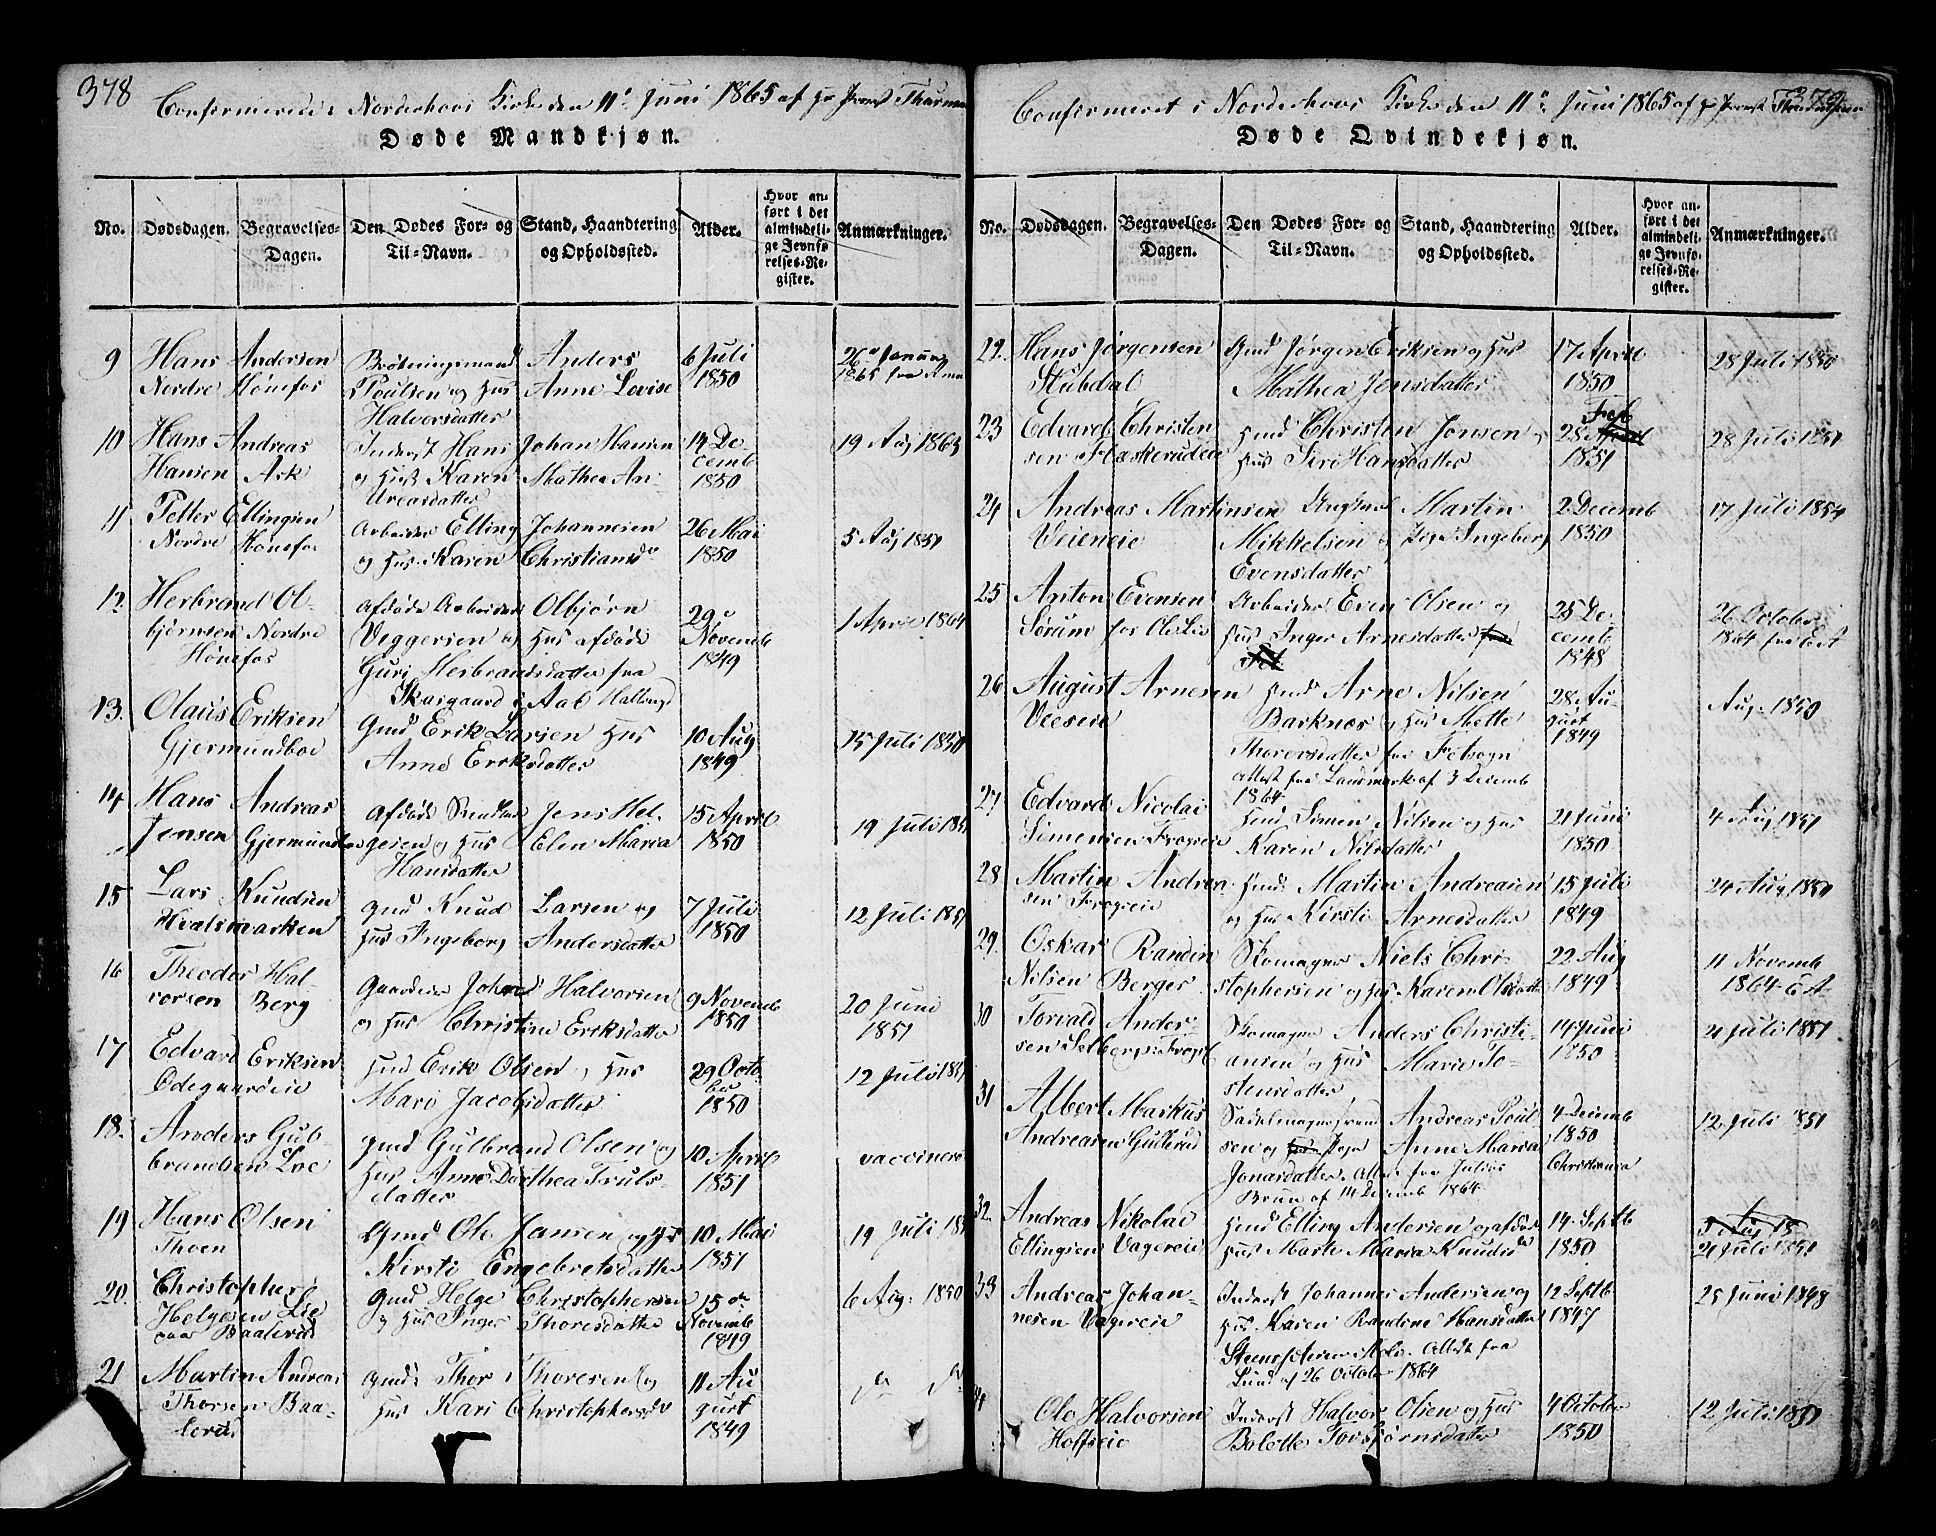 378
Confirmerede i Norderhovs Kirke den 11te Juni 1865 af Hr Provst
Døde Mandkjøn.
No.
Dødsdagen.
Begravelses-
Dagen.
Den Dødes For- og
Til-Navn.
Stand, Haandtering
og Opholdssted.
Alder.
Hvor an-
ført i det
almindeli-
ge Jevnfø-
relses-Re-
gister.
Anmærkninger.
9 Hans Andersen
Nordre Hønefos
Brøtningsmand Anders
Poulsen og Hus Anne Lovise
Halvorsdatter
6 Juli
1850
26de Januar
1865
10 Hans Andreas
Hansen Ask
Inderst Hans Johan Hansen
og Hust Karen Mathea An-
dreasdatter
14 De
cemb
1850
19 Aug 1863
11 Petter Ellingsen
Nordre Hønefos
Arbeider Elling Johannesen
og Hus Karen Christiansdr
26 Mai
1850
5 Aug 1851
12. Herbrand Ol-
bjørnsen Nordre
Hønefos
Afdøde Arbeider Olbjørn
Veggersen og Hus afdøde
Guri Herbrandsdatter fra
Skargaard i Aal Hallingd
29de
Novemb
1849
1 April 1864
13. Olaus Eriksen
Gjermundboe
Gmd Erik Larsen Hus
Anne Eriksdatter
10 Aug
1849
15 Juli 1850
14 Hans Andreas
Jensen Gjermundboe
Afdøde Jens Hel-
gesen og Hus Elen Maria
Hansdatter
15 April
1850
19 Juli 1851
15 Lars Knudsen
Hvalsmarken
Gmd Knud Larsen og
Hus Ingeborg Andersdatter
7 Juli
1850
12 Juli 1851
16 Theodor Hal-
vorsen Berg
Gaardeier Johan Halvorsen
og Hus Christine Eriksdatter
9 Novemb
1850
20 Juni
1851
17 Edvard Eriksen
Ødegaardeie
Hmd Erik Olsen og Hus
Mari Jacobsdatter
29 Octo-
ber
1850
12 Juli 1851
18. Anders Gul-
brandsen Loe
Gmd Gulbrand Olsen og
Hus Anne Dorthea Truls
datter
10 April
1851
vaccinere
19 Hans Olsen
Thoen
Gmd Ole Hansen og Hus
Kirsti Engebretsdatter
10 Mai
1851
19 Juli 185
20. Christopher
Helgesen Lie
paa Baalerud
Gmd Helge Christophersen
og Hus Inger Thoresdatter
15de
Novemb
1849
6 Aug: 1850
21 Martin Andreas
Thorsen Baa-
lerud
Gmd: Thor Thoresen og
Hus Kari Christophersdr
11 Au
gust
1849
do do
379
Confirmeret i Norderhovs Kirke den 11te Juni 1865 af Hr Provst
Døde Qvindekjøn.
No.
Dødsdagen.
Begravelses-
Dagen.
Den Dødes For- og
Til-Navn.
Stand, Haandtering
og Opholdssted.
Alder.
Hvor an-
ført i det
almindeli-
ge Jevnfø-
relses-Re-
gister.
Anmærkninger.
22. Hans Jørgensen
Stubdal
Gmd Jørgen Eriksen og Hus
Mathea Jensdatter
17 April
1850
28 Juli 1850
23 Edvard Christen
sen Flaskerudeie
Hmd Christen Jonsen og
Hus Siri Hansdatter
Feb
28 April
1851
28 Juli 1851
24 Andreas Martinsen
Veieneie
Ungkarl Martin
Mikkelsen og Pige Ingeborg
Evensdatter
2 Decemb
1850
17 Juli 1854
25 Anton Evensen
Sørum
Arbeider Even Olsen og
Hus Inger Arnesdatter fra
Fet
25 De
cemb
1848
26 October
1864
26 August Arnesen
Veeseie
Hmd Arne Nilsen
Barknes og Hus Mette
Thorersdatter fra Fetsogn
Attest fra Landmark af 3 Decemb
1864
28 Au-
gust
1849
Aug. 1850
27 Edvard Nicolai
Simensen Frogeie
Hmd Simen Nilsen og Hus
Karen Nilsdatter
21 Juni
1850
4 Aug 1851
28 Martin Andrea
sen Frogeie
Hmd: Martin Andreasen
og Hus Kirsti Arnesdatter
15 Juli
1849
24 Aug 1850
29. Oskar Randin
Nilsen Berger
Skomager Niels Chri-
stophersen og Hus Karen Olsdatter
22 Aug
1849
11 Novemb
1864
30 Torvald Ander-
sen Selberg
Skomager Anders Christi-
ansen og Hus Marie To-
stensdatter
14 Juni
1850
21 Juli 1851
31 Albert Markus
Andreasen Gulbrud
Sadelmagersvend Andreas Poul
sen og Pige Anne Maria
Jonasdatter. Attest fra Julius
Bruun af 14 Decemb 1864
4 Decemb
1850
Christiania
12 Juli 1851
32. Andreas Nikolai
Ellingsen Vagereie
Hmd Elling Andersen og afdøde
Hus Marte Maria Knudsdr
14 Septb
1850
5 Aug 18
21 Juli 1851
33 Andreas Johan-
nesen Vagereie
Inderst Johannes Andersen og
Hus Karen Randine Hansdatter
Attest fra
Lund af 26 October 1864
12 Septb
1847
25 Juni 1848
Ole Halvorsen
Hoffseie
Inderst Halvor Olsen og Hus
Bolette Torbjørnsdatter
4 October
1850
12 Juli 1851